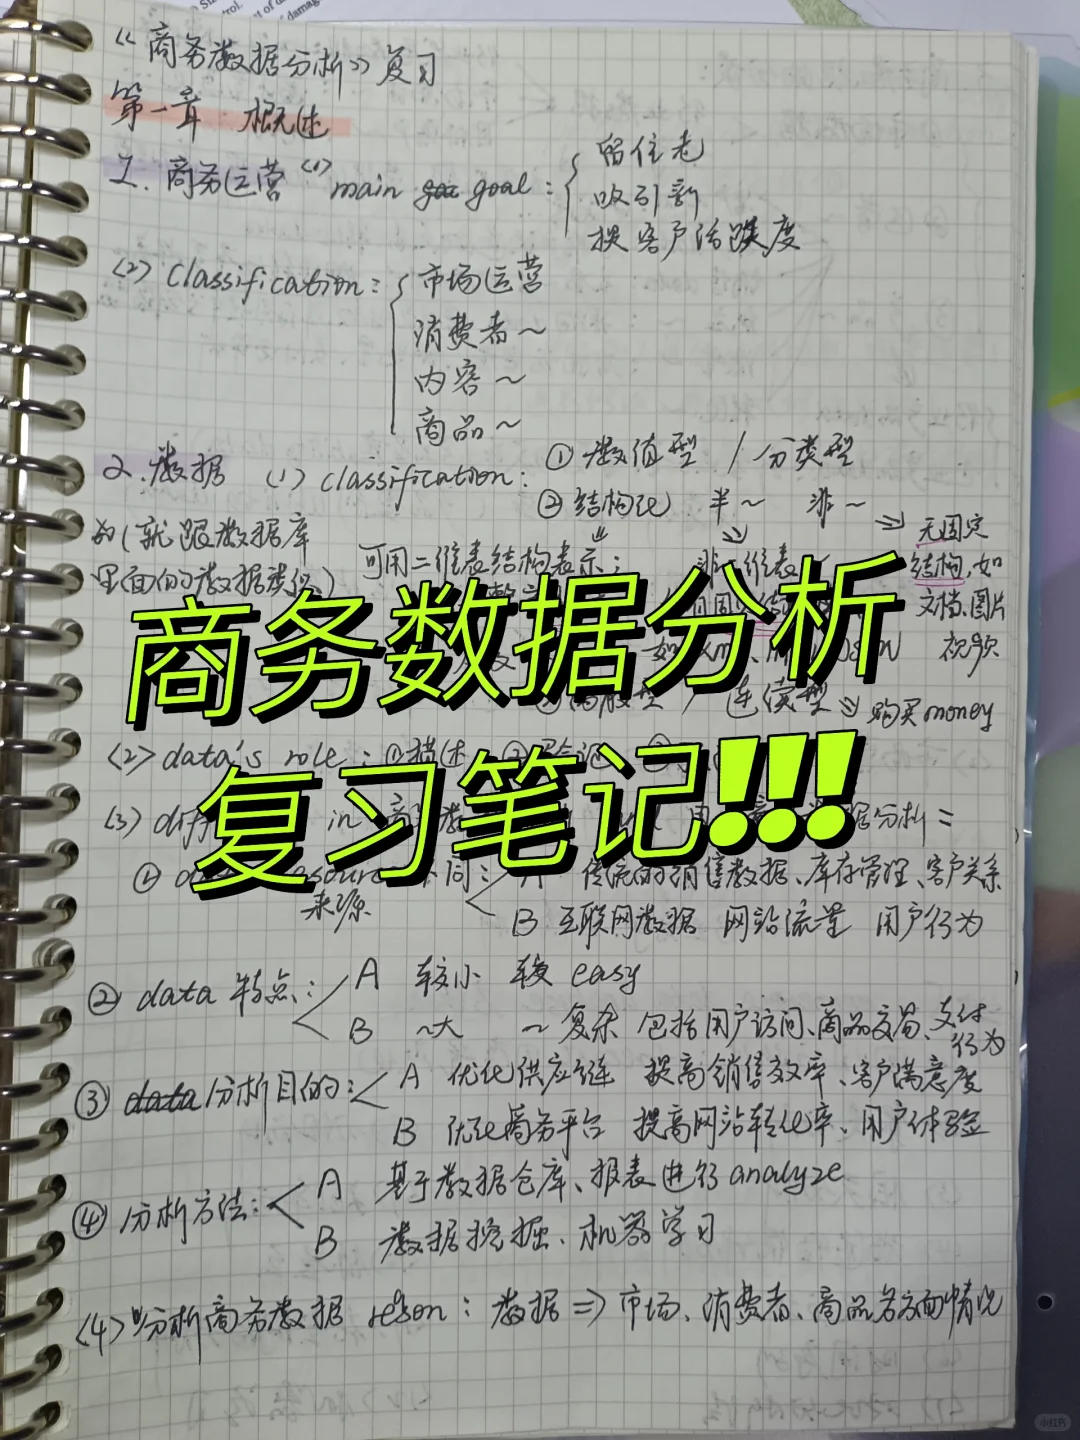 《商务数据分析》复习
第一章 概述
1. 商务运营 (1) main goal: 留住老
吸引新
提客户活跃度
(2) classification: 市场运营
消费者~
内容~
商品~
2. 数据 (1) classification: ① 数值型 / 分类型
② 结构化 半~ 非~ ⇒ 无固定
(就跟数据库
里面的数据类似)
可用二维表结构表示;
非二维表
结构,如
文档、图片
视频
商务数据分析
复习笔记!!!
连续型 ⇒ 购买money
(2) data's role: ①描述
(3) in
据分析=
不同: A 传统的销售数据、库存管理、客户关系
来源
B 互联网数据 网站流量 用户行为
② data 特点: A 较小 较 easy
B ~大 ~复杂 包括用户访问、商品交易、支付
行为
③ 分析目的: A 优化供应链 提高销售效率、客户满意度
B 优化商务平台 提高网站转化率、用户体验
④ 分析方法: A 基于数据仓库、报表进行analyze
B 数据挖掘、机器学习
(4) 分析商务数据 reson: 数据 ⇒ 市场、消费者、商品各方面情况
小红书